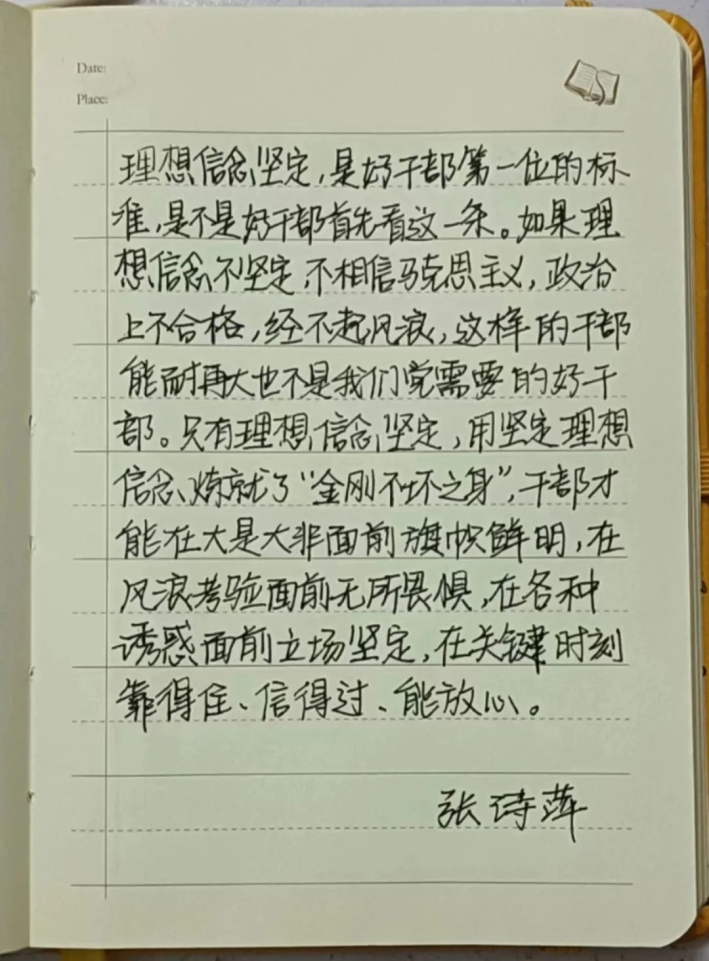 Date:
Place:
理想信念坚定，是好干部第一位的标
准，是不是好干部首先看这一条。如果理
想信念不坚定，不相信马克思主义，政治
上不合格，经不起风浪，这样的干部
能耐再大也不是我们党需要的好干
部。只有理想信念坚定，用坚定理想
信念炼就了“金刚不坏之身”，干部才
能在大是大非面前旗帜鲜明，在
风浪考验面前无所畏惧，在各种
诱惑面前立场坚定，在关键时刻
靠得住、信得过、能放心。
张诗萍